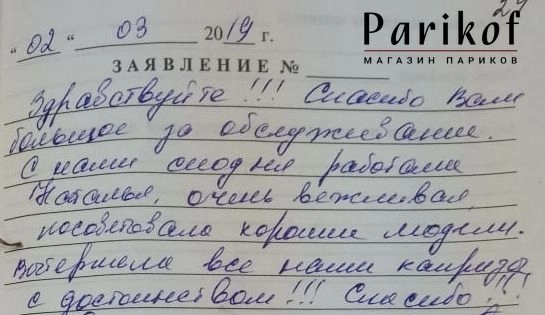 29
Parikof
МАГАЗИН ПАРИКОВ
"02" 03 2019 г.
ЗАЯВЛЕНИЕ №
Здравствуйте!!! Спасибо Вам
большое за обслуживание.
С нами сиодня работала
Наталья, очень вежливая,
посоветовала хорошии модели.
Вытерпела все наши капризы
с достоинством!!! Спасибо!!!